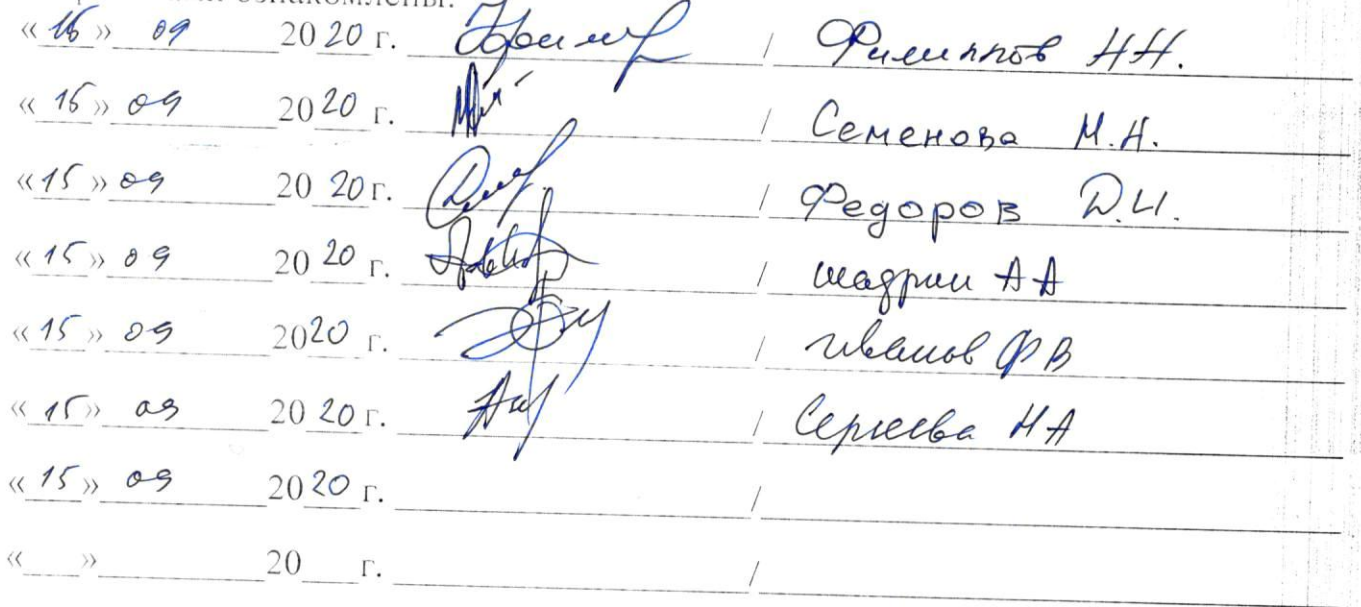 ознакомлены.
«16» 09 2020 г. / Филиппов Н.Н.
«15» 09 2020 г. / Семенова М.Н.
«15» 09 2020 г. / Федоров Д.И.
«15» 09 2020 г. / Шадрин АА
«15» 09 2020 г. / Иванов ФВ
«15» 09 2020 г. / Сергеева НА
«15» 09 2020 г. /
« » 20 г. /